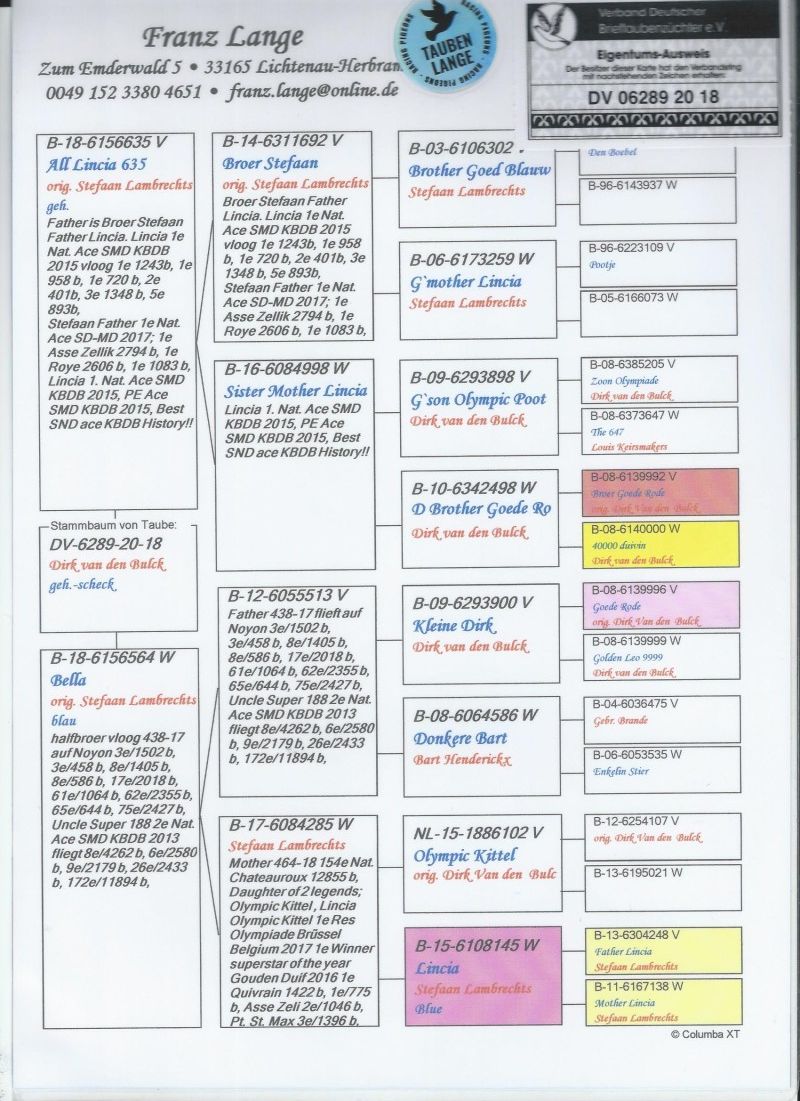 Franz Lange
Zum Emderwald 5 • 33165 Lichtenau-Herbran
0049 152 3380 4651 • franz.lange@online.de
RACING PIGEONS
TAUBEN
LANGE
RACING PIGEONS
Verband Deutscher
Brieftaubenzüchter e.V.
Eigentums-Ausweis
Der Besitzer dieser Karte hat den Verbandsring
mit nachstehenden Zeichen erhalten:
DV 06289 20 18
B-18-6156635 V
All Lincia 635
orig. Stefaan Lambrechts
geh.
Father is Broer Stefaan
Father Lincia. Lincia 1e
Nat. Ace SMD KBDB
2015 vloog 1e 1243b, 1e
958 b, 1e 720 b, 2e
401b, 3e 1348 b, 5e
893b,
Stefaan Father 1e Nat.
Ace SD-MD 2017; 1e
Asse Zellik 2794 b, 1e
Roye 2606 b, 1e 1083 b,
Lincia 1. Nat. Ace SMD
KBDB 2015, PE Ace
SMD KBDB 2015, Best
SND ace KBDB History!!
Stammbaum von Taube:
DV-6289-20-18
Dirk van den Bulck
geh.-scheck
B-18-6156564 W
Bella
orig. Stefaan Lambrechts
blau
halfbroer vloog 438-17
auf Noyon 3e/1502 b,
3e/458 b, 8e/1405 b,
8e/586 b, 17e/2018 b,
61e/1064 b, 62e/2355 b,
65e/644 b, 75e/2427 b,
Uncle Super 188 2e Nat.
Ace SMD KBDB 2013
fliegt 8e/4262 b, 6e/2580
b, 9e/2179 b, 26e/2433
b, 172e/11894 b,
B-14-6311692 V
Broer Stefaan
orig. Stefaan Lambrechts
Broer Stefaan Father
Lincia. Lincia 1e Nat.
Ace SMD KBDB 2015
vloog 1e 1243b, 1e 958
b, 1e 720 b, 2e 401b, 3e
1348 b, 5e 893b,
Stefaan Father 1e Nat.
Ace SD-MD 2017; 1e
Asse Zellik 2794 b, 1e
Roye 2606 b, 1e 1083 b,
B-16-6084998 W
Sister Mother Lincia
Lincia 1. Nat. Ace SMD
KBDB 2015, PE Ace
SMD KBDB 2015, Best
SND ace KBDB History!!
B-12-6055513 V
Father 438-17 flieft auf
Noyon 3e/1502 b,
3e/458 b, 8e/1405 b,
8e/586 b, 17e/2018 b,
61e/1064 b, 62e/2355 b,
65e/644 b, 75e/2427 b,
Uncle Super 188 2e Nat.
Ace SMD KBDB 2013
fliegt 8e/4262 b, 6e/2580
b, 9e/2179 b, 26e/2433
b, 172e/11894 b,
B-17-6084285 W
Stefaan Lambrechts
Mother 464-18 154e Nat.
Chateauroux 12855 b,
Daughter of 2 legends;
Olympic Kittel , Lincia
Olympic Kittel 1e Res
Olympiade Brüssel
Belgium 2017 1e Winner
superstar of the year
Gouden Duif 2016 1e
Quivrain 1422 b, 1e/775
b, Asse Zeli 2e/1046 b,
Pt. St. Max 3e/1396 b,
B-03-6106302
Brother Goed Blauw
Stefaan Lambrechts
B-06-6173259 W
G`mother Lincia
Stefaan Lambrechts
B-09-6293898 V
G`son Olympic Poot
Dirk van den Bulck
B-10-6342498 W
D Brother Goede Ro
Dirk van den Bulck
B-09-6293900 V
Kleine Dirk
Dirk van den Bulck
B-08-6064586 W
Donkere Bart
Bart Henderickx
NL-15-1886102 V
Olympic Kittel
orig. Dirk Van den Bulc
B-15-6108145 W
Lincia
Stefaan Lambrechts
Blue
Den Boebel
B-96-6143937 W
B-96-6223109 V
Pootje
B-05-6166073 W
B-08-6385205 V
Zoon Olympiade
Dirk van den Bulck
B-08-6373647 W
The 647
Louis Keirsmakers
B-08-6139992 V
Broer Goede Rode
orig. Dirk Van den Bulck
B-08-6140000 W
40000 duivin
Dirk van den Bulck
B-08-6139996 V
Goede Rode
orig. Dirk Van den Bulck
B-08-6139999 W
Golden Leo 9999
Dirk van den Bulck
B-04-6036475 V
Gebr. Brande
B-06-6053535 W
Enkelin Stier
B-12-6254107 V
orig. Dirk Van den Bulck
B-13-6195021 W
B-13-6304248 V
Father Lincia
Stefaan Lambrechts
B-11-6167138 W
Mother Lincia
Stefaan Lambrechts
© Columba XT